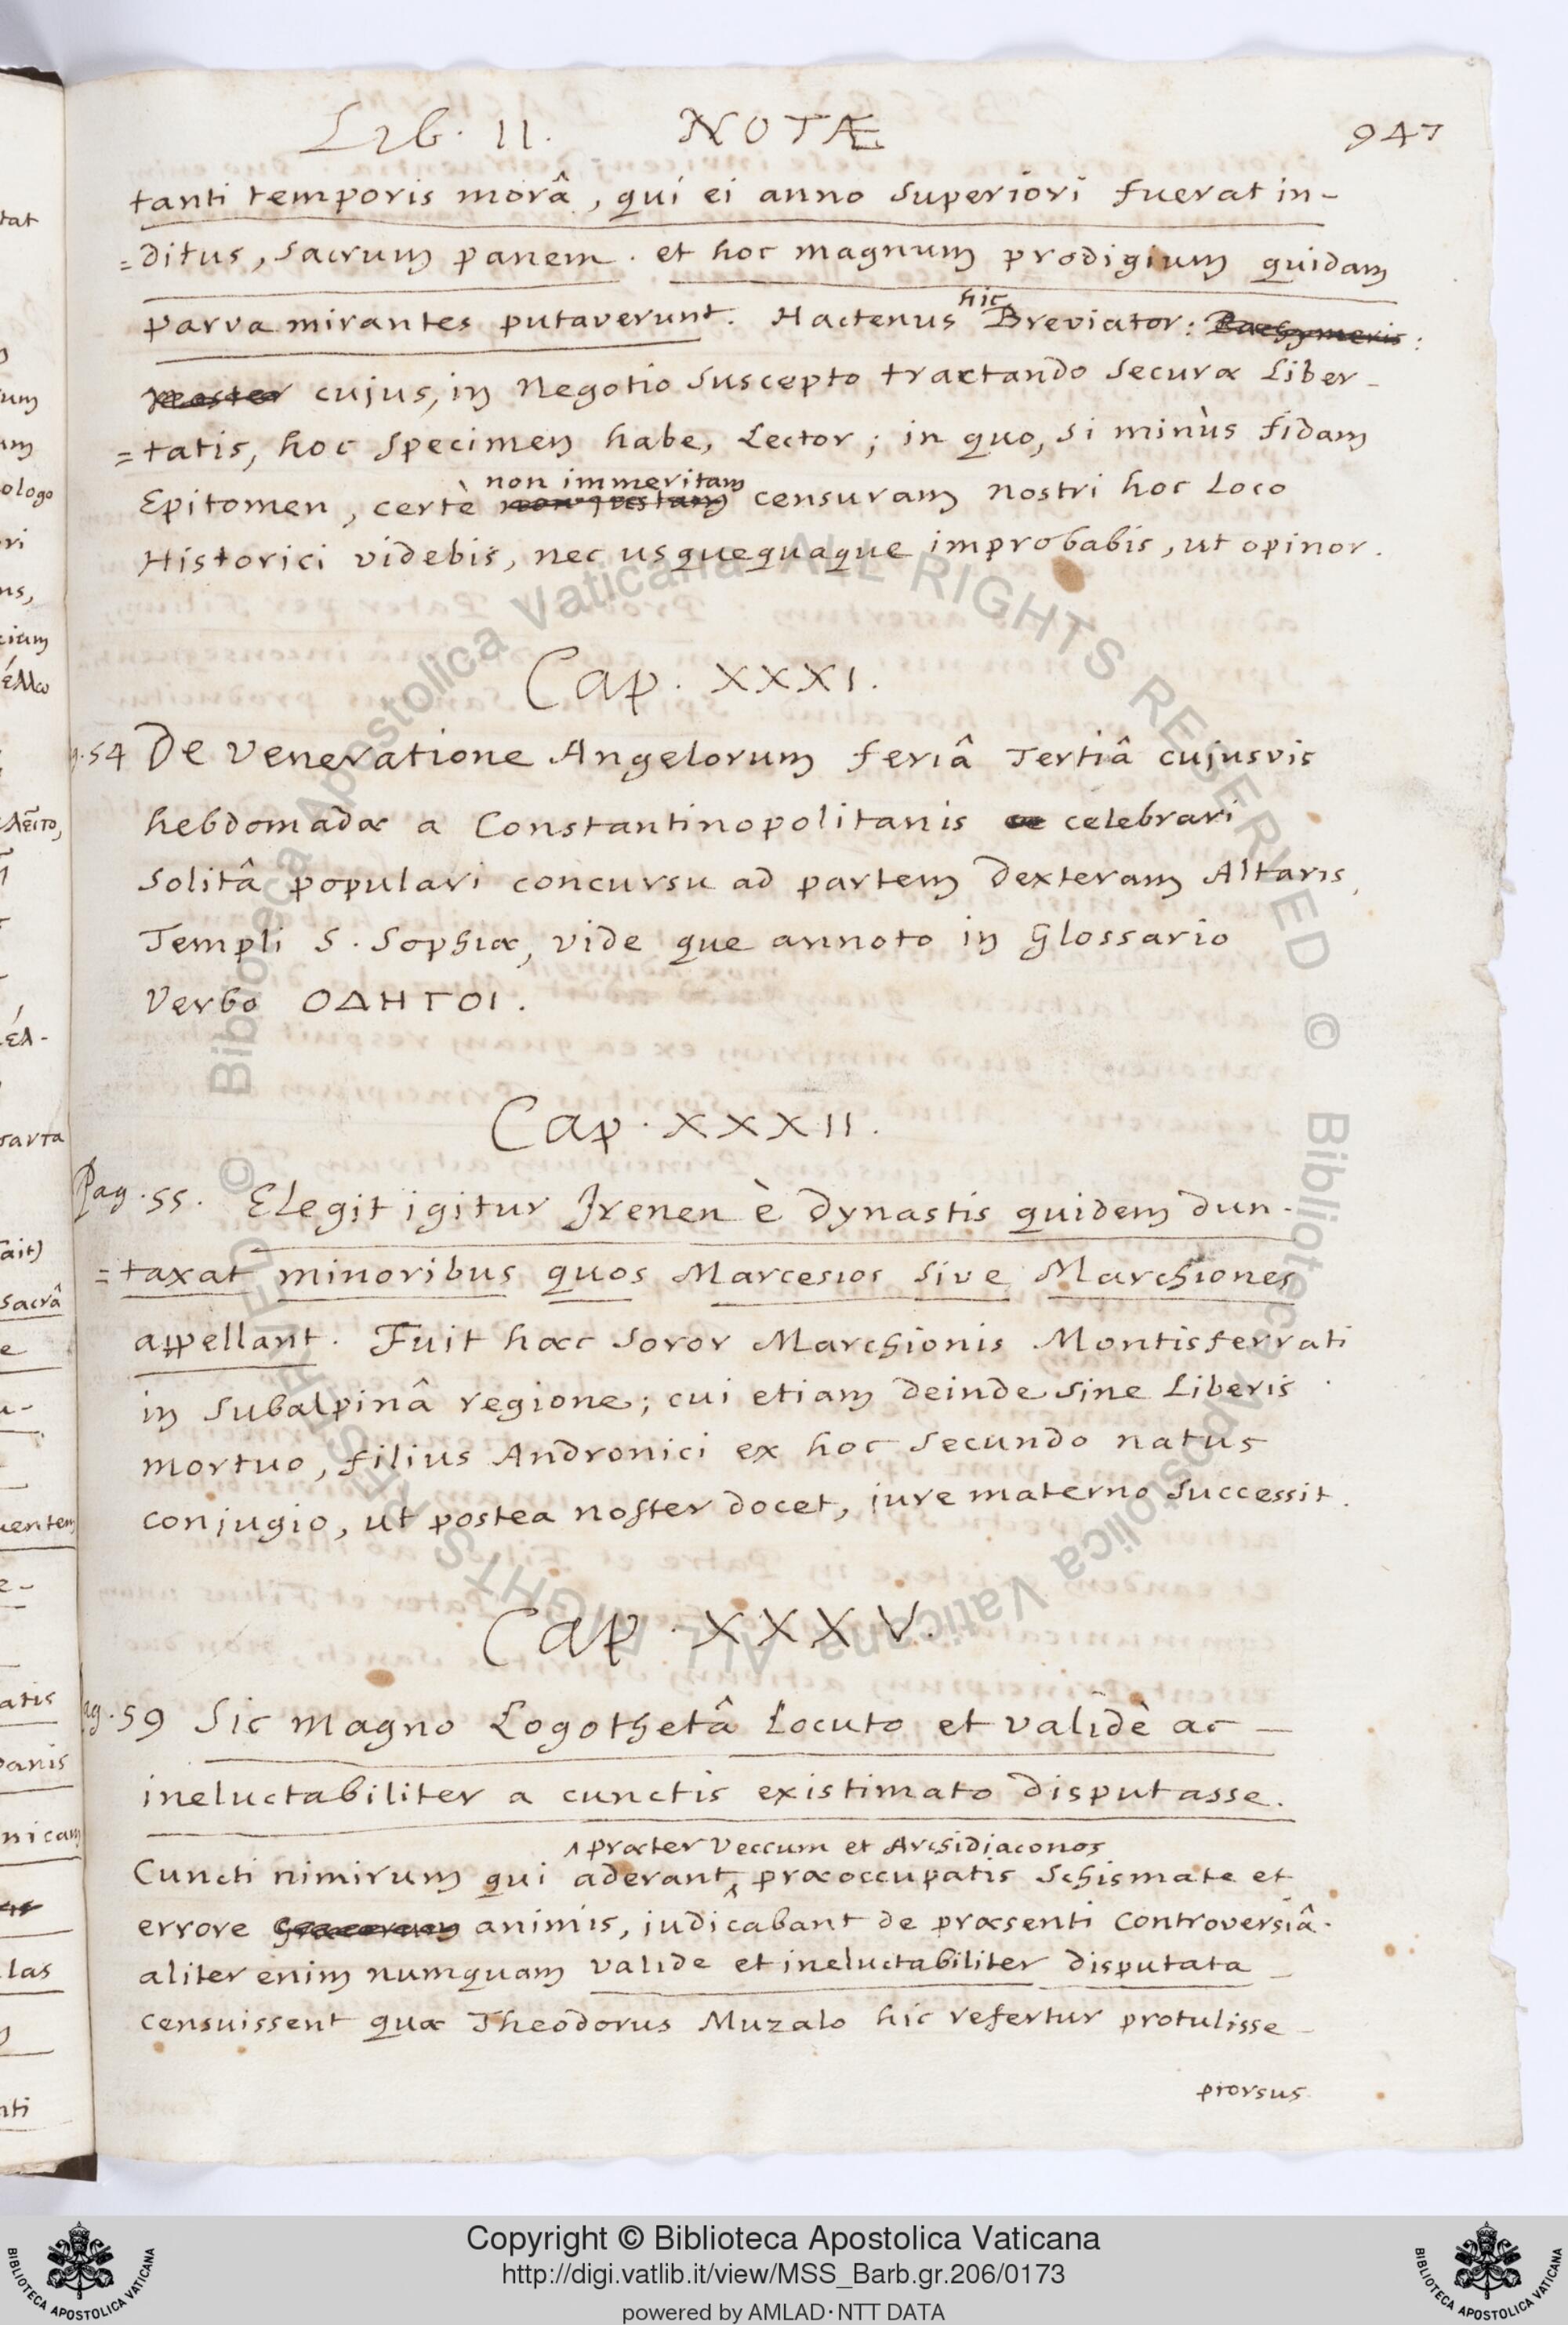 Lib. II. NOTÆ 947
tanti temporis morâ, qui ei anno superiori fuerat in-
=ditus, sacrum panem. et hoc magnum prodigium quidam
parva mirantes putaverunt. Hactenus hic Breviator: Pachymeris:
noster cujus, in negotio suscepto tractando securæ liber-
=tatis, hoc specimen habe, Lector; in quo, si minùs fidam
non immeritam
Epitomen, certè non justam censuram nostri hoc loco
Historici videbis, nec usquequaque improbabis, ut opinor.
Cap. XXXI.
g.54 De Veneratione Angelorum feriâ Tertiâ cujusvis
hebdomadæ a Constantinopolitanis celebrari
solitâ populari concursu ad partem dexteram Altaris,
Templi S. Sophiæ, vide que annoto in Glossario
Verbo ΟΔΗΓΟΙ.
Cap. XXXII.
Pag. 55. Elegit igitur Irenen è dynastis quidem dun-
=taxat minoribus quos Marcesios sive Marchiones
appellant. Fuit hæc soror Marchionis Montisferrati
in subalpinâ regione; cui etiam deinde sine liberis
mortuo, filius Andronici ex hoc secundo natus
conjugio, ut postea noster docet, jure materno successit.
Cap. XXXV.
ag. 59 Sic magno Logothetâ locuto et validè ac
ineluctabiliter a cunctis existimato disputasse.
præter Veccum et Archidiaconos
Cuncti nimirum qui aderant, præoccupatis schismate et
errore Græcorum animis, judicabant de præsenti controversiâ.
aliter enim numquam valide et ineluctabiliter disputata
censuissent quæ Theodorus Muzalo hic refertur protulisse
prorsus
tat
um
ologo
ri
ns,
cium
έλλω
λεῖτο,
έλ-
sarta
ait)
sacrâ
e
uentem
atis
panis
nicam
las
nti
© Biblioteca Apostolica Vaticana ALL RIGHTS RESERVED © Biblioteca Apostolica Vaticana ALL RIGHTS RESERVED
Copyright © Biblioteca Apostolica Vaticana
http://digi.vatlib.it/view/MSS_Barb.gr.206/0173
powered by AMLAD·NTT DATA
BIBLIOTECA APOSTOLICA VATICANA
BIBLIOTECA APOSTOLICA VATICANA